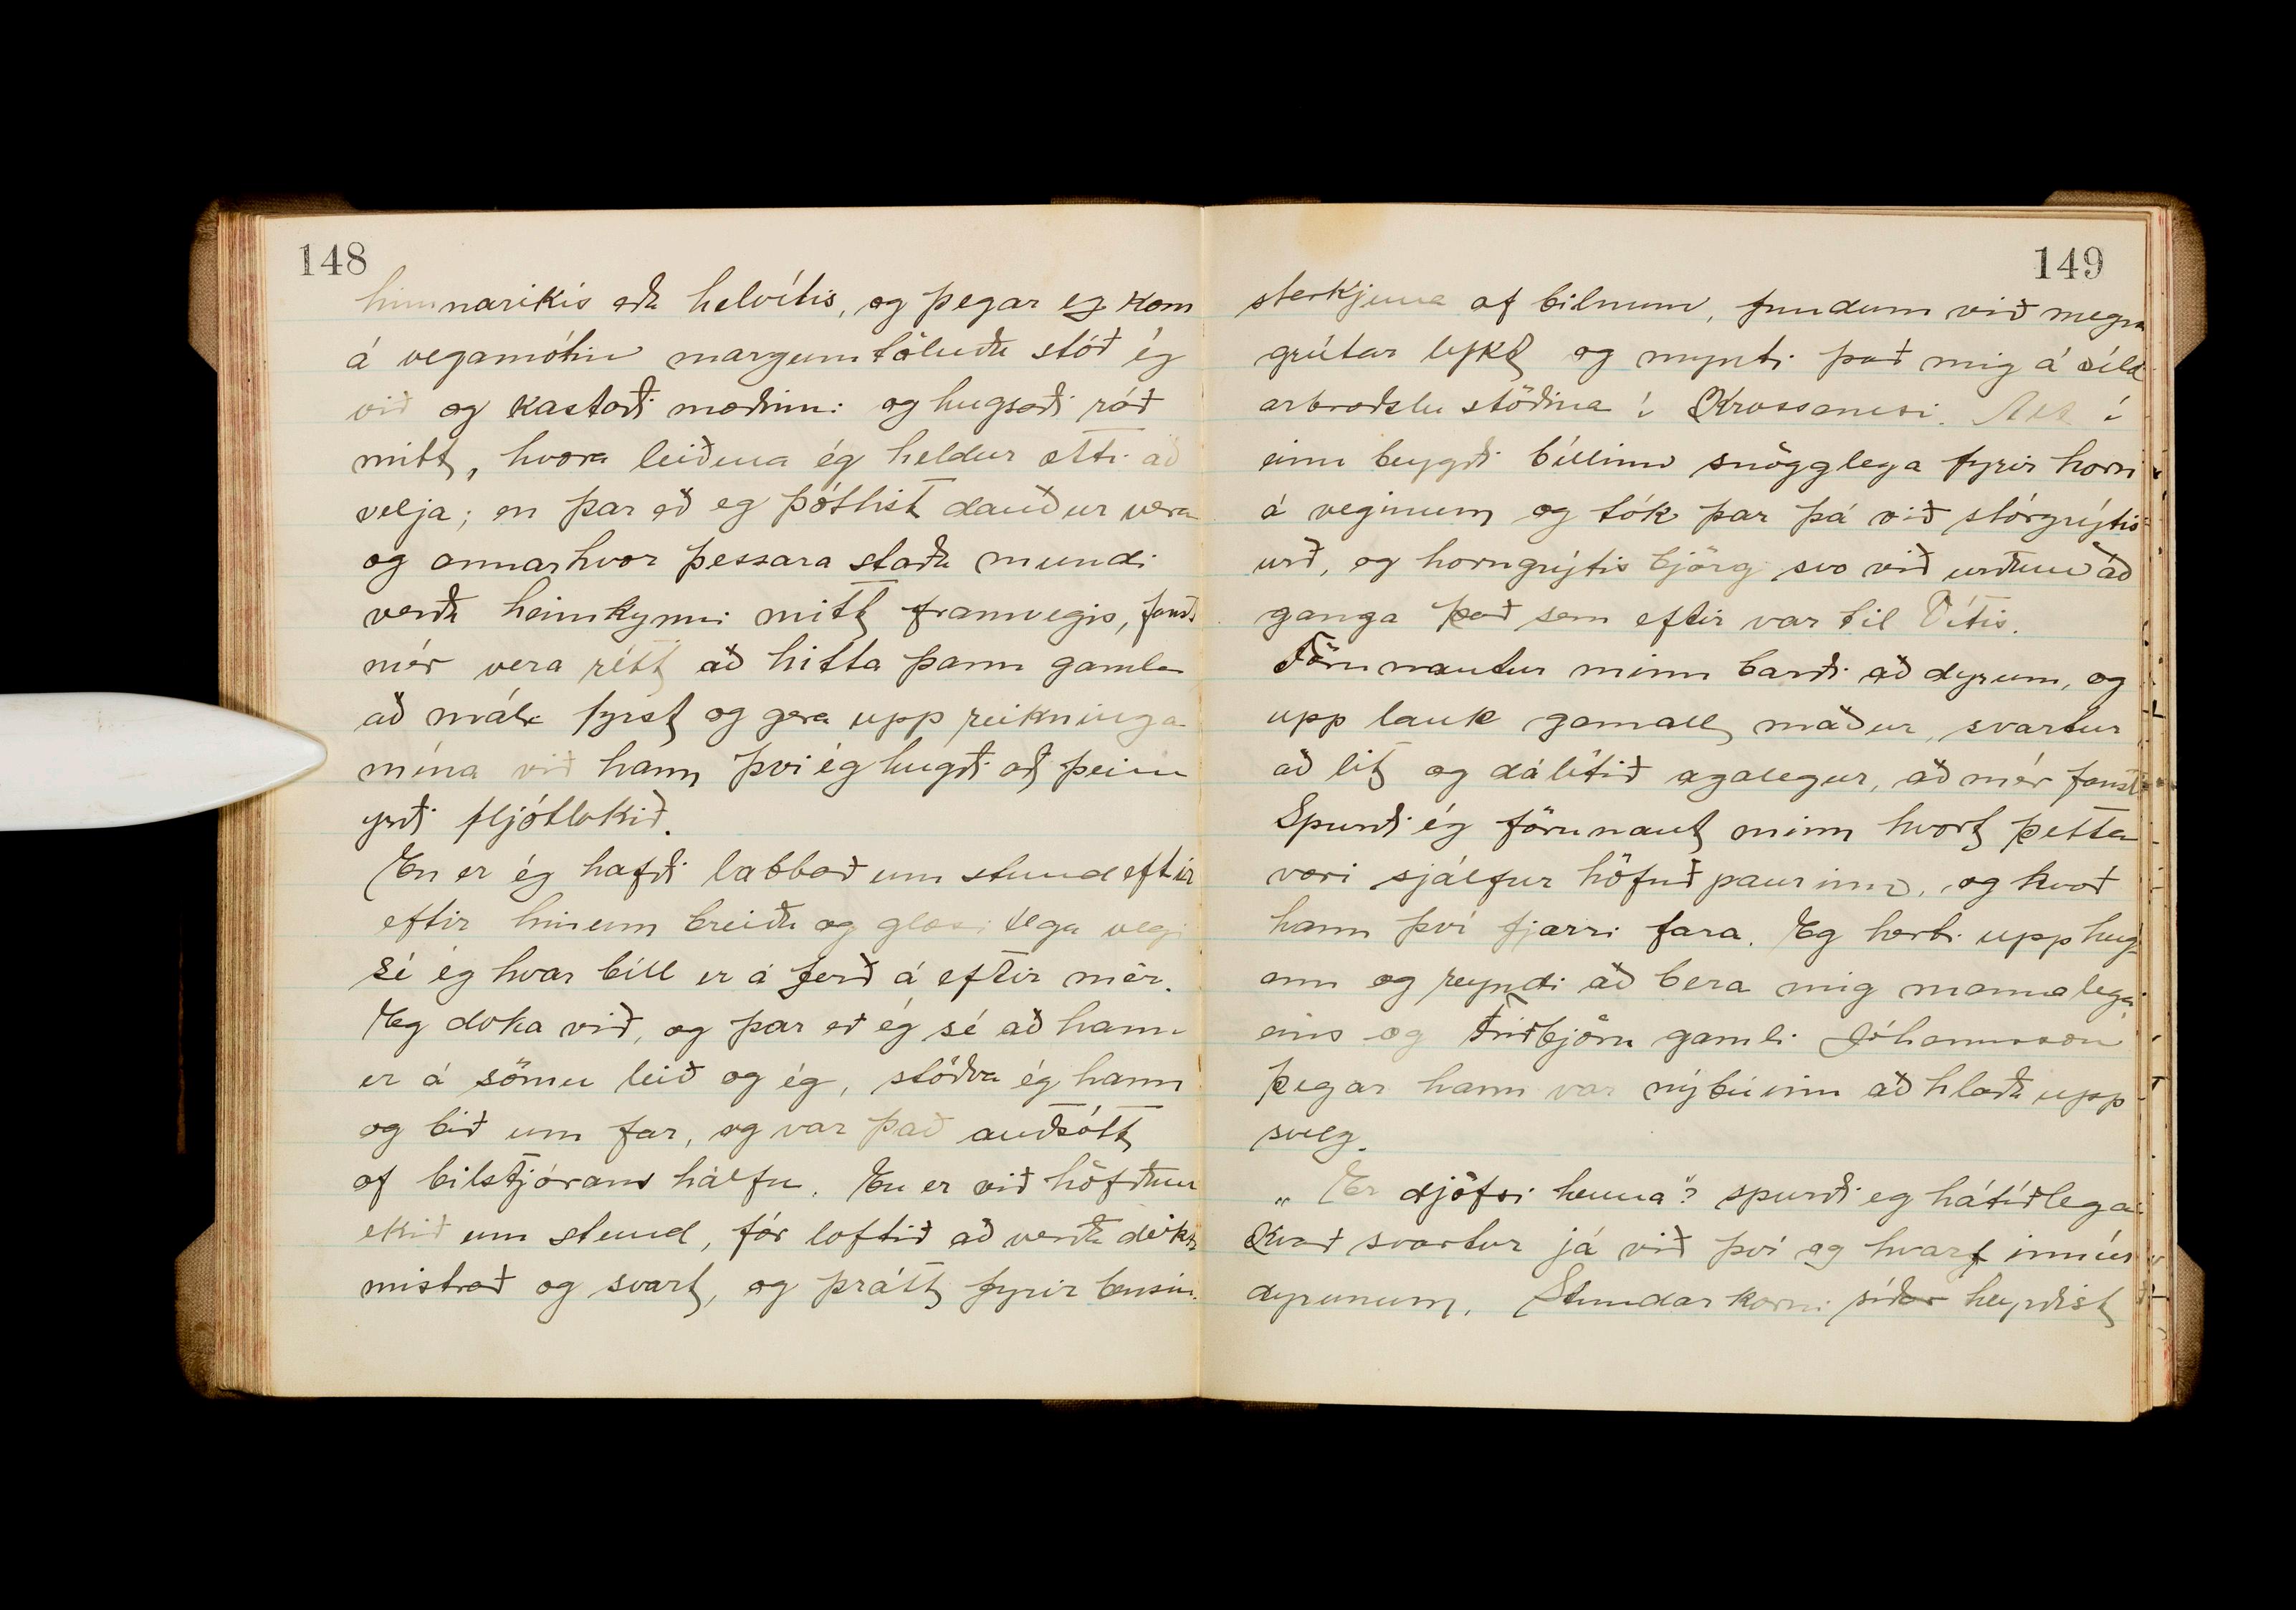 148
himnaríkis eða helvítis, og þegar eg kom
á vegamótin margumtöluðu stóð ég
við og kastaði mæðinni og hugsaði ráð
mitt, hvora leiðina ég heldur ætti að
velja; en þar eð eg þóttist dauður vera
og annarhvor þessara staða mundi
verða heimkynni mitt framvegis, fanst
mér vera rétt að hitta þann gamla
að máli fyrst og gera upp reikninga
mína við hann því ég hugði að þeim
yrði fljótlokið.
En er ég hafði labbað um stund eftir
eftir hinum breiða og glæsilega vegi
sé ég hvar bíll er á ferð á eftir mér.
Eg doka við, og þar eð ég sé að hann
er á sömu leið og ég, stöðva ég hann
og bið um far, og var það auðsótt
af bilstjórans hálfu. En er við höfðum
ekið um stund, fór loftið að verða dökt
mistrað og svart, og þrátt fyrir bensín
149
sterkjuna af bilnum, fundum við megna
grútar lykt og mynti það mig á síld
arbræðslu stöðina í Krossanesi. Alt í
einu beygði bíllinn snögglega fyrir horn
á veginum og tók þar þá við stórgrýtis
urð, og horngrýtis björg svo við urðum að
ganga það sem eftir var til Vítis.
Förunautur minn barði að dyrum, og
upp lauk gamall maður, svartur
að lit og dálítið agalegur, að mér fanst
Spurði ég förunaut minn hvort þetta
væri sjálfur höfuðpaurinn, og kvað
hann því fjarri fara. Eg herti upp hug-
ann og reyndi að bera mig mannalega
eins og Friðbjörn gamli Jóhannsson
þegar hann var nýbúinn að hlaða upp
svelg.
„Er djöfsi heima"? spurði eg hátíðlega
Kvað svartur já við því og hvarf inn úr
dyrunum. Stundarkorni síðar heyrðist